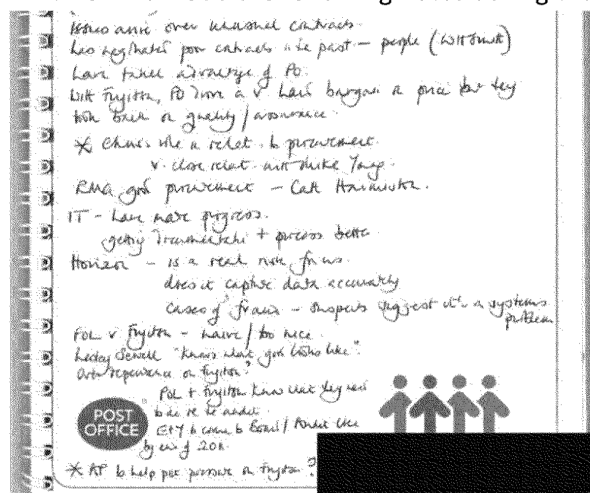 Issues arise over unusual contracts.
Has negotiated poor contracts in the past – people (
have taken advantage of PO.
With Fujitsu, PO drove a v. hard bargain on price but they
took back on quality / assurance.
* Chris role a relat. to procurement
v. close relat. with Mike Young.
RMG good procurement – Cath
IT – have made progress.
getting documentation + process better
Horizon – is a real risk for us.
does it capture data accurately
cases of fraud – suspects suggest it's a systems
problem
POL v Fujitsu – naive / too nice
Lesley Sewell "knows what good looks like".
Over dependence on Fujitsu?
POL + Fujitsu know what they need
to do re the audit
POST
OFFICE
E+Y to come to Board /
by end of
* AP to help put pressure on Fujitsu?